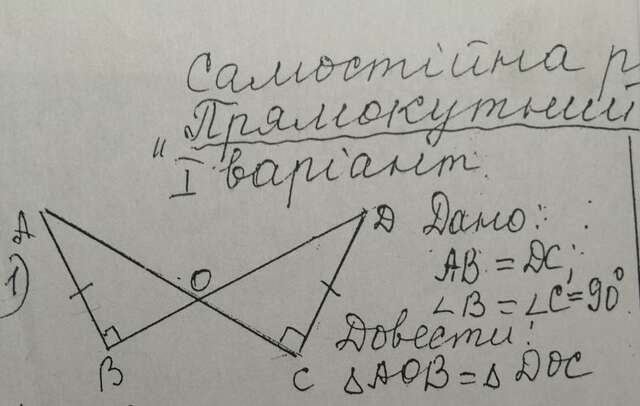 Самостійна р
"Прямокутний
I варіант.
A
D
Дано:
AB = DC;
1)
O
∠B = ∠C = 90°
Довести:
B
C
△AOB = △DOC